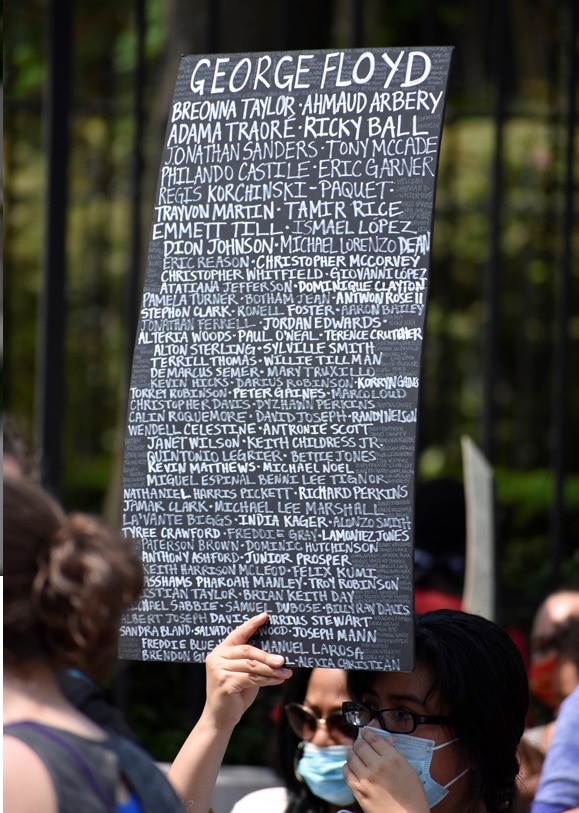 GEORGE FLOYD
BREONNA TAYLOR · AHMAUD ARBERY
ADAMA TRAORÉ · RICKY BALL
JONATHAN SANDERS · TONY MCCADE
PHILANDO CASTILE · ERIC GARNER
REGIS KORCHINSKI-PAQUET ·
TRAYVON MARTIN · TAMIR RICE
EMMETT TILL · ISMAEL LÓPEZ
DION JOHNSON · MICHAEL LORENZO DEAN
ERIC REASON · CHRISTOPHER MCCORVEY
CHRISTOPHER WHITFIELD · GIOVANNI LÓPEZ
ATATIANA JEFFERSON · DOMINIQUE CLAYTON
PAMELA TURNER · BOTHAM JEAN · ANTWON ROSE II
STEPHON CLARK · RONELL FOSTER · AARON BAILEY
JONATHAN FERRELL · JORDAN EDWARDS ·
ALTERIA WOODS · PAUL O'NEAL · TERENCE CRUTCHER
ALTON STERLING · SYLVILLE SMITH
TERRILL THOMAS · WILLIE TILLMAN
DEMARCUS SEMER · MARY TRUXILLO
KEVIN HICKS · DARIUS ROBINSON · KORRYN GAINS
TORREY ROBINSON · PETER GAINES · MARCO LOUD
CHRISTOPHER DAVIS · DYZHAWN PERKINS
CALIN ROQUEMORE · DAVID JOSEPH · RANDY NELSON
WENDELL CELESTINE · ANTRONIE SCOTT
JANET WILSON · KEITH CHILDRESS JR.
QUINTONIO LEGRIER · BETTIE JONES
KEVIN MATTHEWS · MICHAEL NOEL
MIGUEL ESPINAL BENNI LEE TIGNOR
NATHANIEL HARRIS PICKETT · RICHARD PERKINS
JAMAR CLARK · MICHAEL LEE MARSHALL
LA'VANTE BIGGS · INDIA KAGER · ALONZO SMITH
TYREE CRAWFORD · FREDDIE GRAY · LAMONTEZ JONES
PATERSON BROWN · DOMINIC HUTCHINSON
ANTHONY ASHFORD · JUNIOR PROSPER
KEITH HARRISON MCLEOD · FELIX KUMI
ASSHAMS PHAROAH MANLEY · TROY ROBINSON
TIAN TAYLOR · BRIAN KEITH DAY
SABBIE · SAMUEL DUBOSE · BILLY RAY DAVIS
ALBERT JOSEPH DAVIS · STEWART
SANDRA BLAND · WOOD · JOSEPH MANN
FREDDIE LAROSA
BRENDON · ALEXIA CHRISTIAN